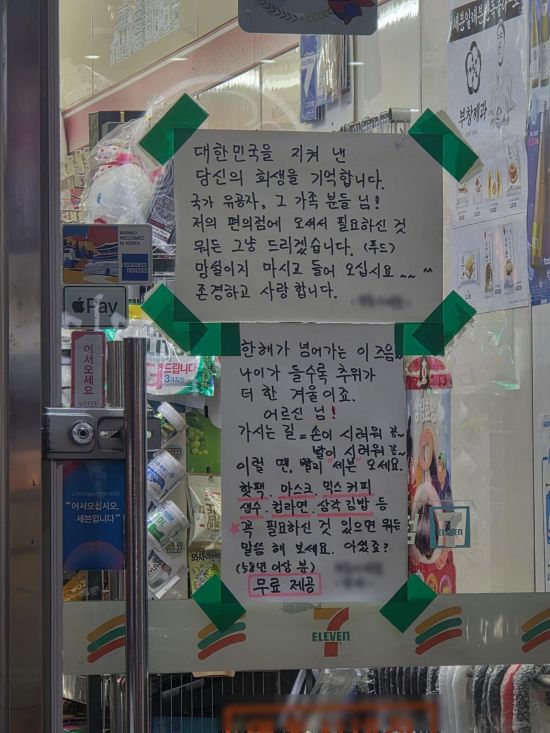 대한민국을 지켜 낸
당신의 희생을 기억합니다.
국가 유공자, 그 가족 분들 님!
저의 편의점에 오셔서 필요하신 것
뭐든 그냥 드리겠습니다. (푸드)
망설이지 마시고 들어 오십시요~~ ^^
존경하고 사랑합니다.
한해가 넘어가는 이 즈음~
나이가 들수록 추위가
더 한 겨울이죠.
어르신 님!
가시는 길 = 손이 시려워 꽁~
발이 시려워 꽁~
이럴 땐, 빨리 "세븐" 오세요.
핫팩. 마스크. 믹스 커피
생수. 컵라면. 삼각 김밥 등
꼭 필요하신 것 있으면 뭐든
말씀 해 보세요. 아셨죠?
(58년 이상 분)
무료 제공
WARMLY
WELCOMED
IN KOREA
AMERICAN
EXPRESS
Pay
어서오세요
드립니다
"어서오십시오,
세븐입니다"
부창제과
7
ELEVEN